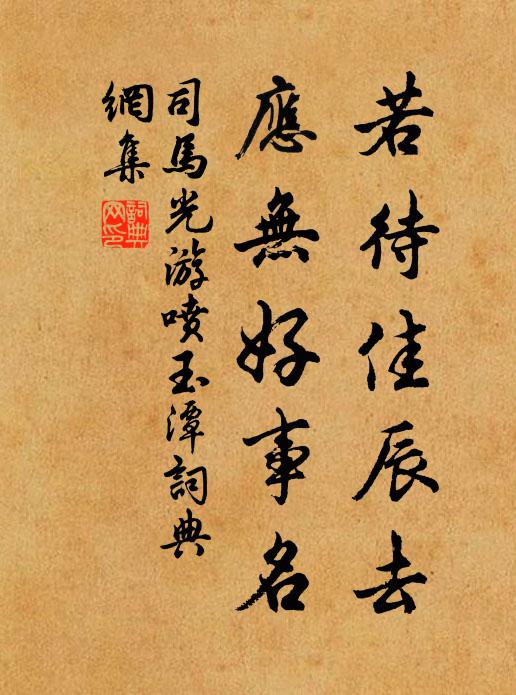 若待佳辰去
應無好事名
司馬光游噴玉潭詞典
網集
詞典
网印